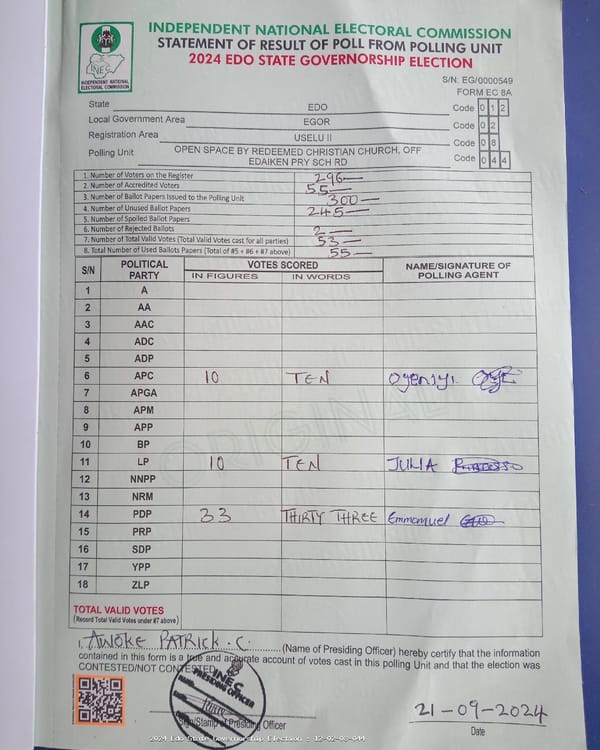 INDEPENDENT NATIONAL ELECTORAL COMMISSION
STATEMENT OF RESULT OF POLL FROM POLLING UNIT
2024 EDO STATE GOVERNORSHIP ELECTION
INEC
INDEPENDENT NATIONAL ELECTORAL COMMISSION
S/N: EG/0000549
FORM EC 8A
State EDO Code 0 1 2
Local Government Area EGOR Code 0 2
Registration Area USELU II Code 0 8
Polling Unit OPEN SPACE BY REDEEMED CHRISTIAN CHURCH, OFF EDAIKEN PRY SCH RD Code 0 4 4
1. Number of Voters on the Register 296
2. Number of Accredited Voters 55
3. Number of Ballot Papers Issued to the Polling Unit 300
4. Number of Unused Ballot Papers 245
5. Number of Spoiled Ballot Papers
6. Number of Rejected Ballots 2
7. Number of Total Valid Votes (Total Valid Votes cast for all parties) 53
8. Total Number of Used Ballots Papers (Total of #5 + #6 + #7 above) 55
S/N POLITICAL PARTY VOTES SCORED NAME/SIGNATURE OF POLLING AGENT
IN FIGURES IN WORDS
1 A
2 AA
3 AAC
4 ADC
5 ADP
6 APC 10 TEN
7 APGA
8 APM
9 APP
10 BP
11 LP 10 TEN JULIA
12 NNPP
13 NRM
14 PDP 33 THIRTY THREE Emmanuel
15 PRP
16 SDP
17 YPP
18 ZLP
ORIGINAL
TOTAL VALID VOTES
(Record Total Valid Votes under #7 above)
I, ANOKE PATRICK. C. (Name of Presiding Officer) hereby certify that the information
contained in this form is a true and accurate account of votes cast in this polling Unit and that the election was
CONTESTED/NOT CONTESTED
INEC
PRESIDING OFFICER
Sign/Stamp of Presiding Officer
21-09-2024
Date
2024 Edo State Governorship Election : 12-02-08-044